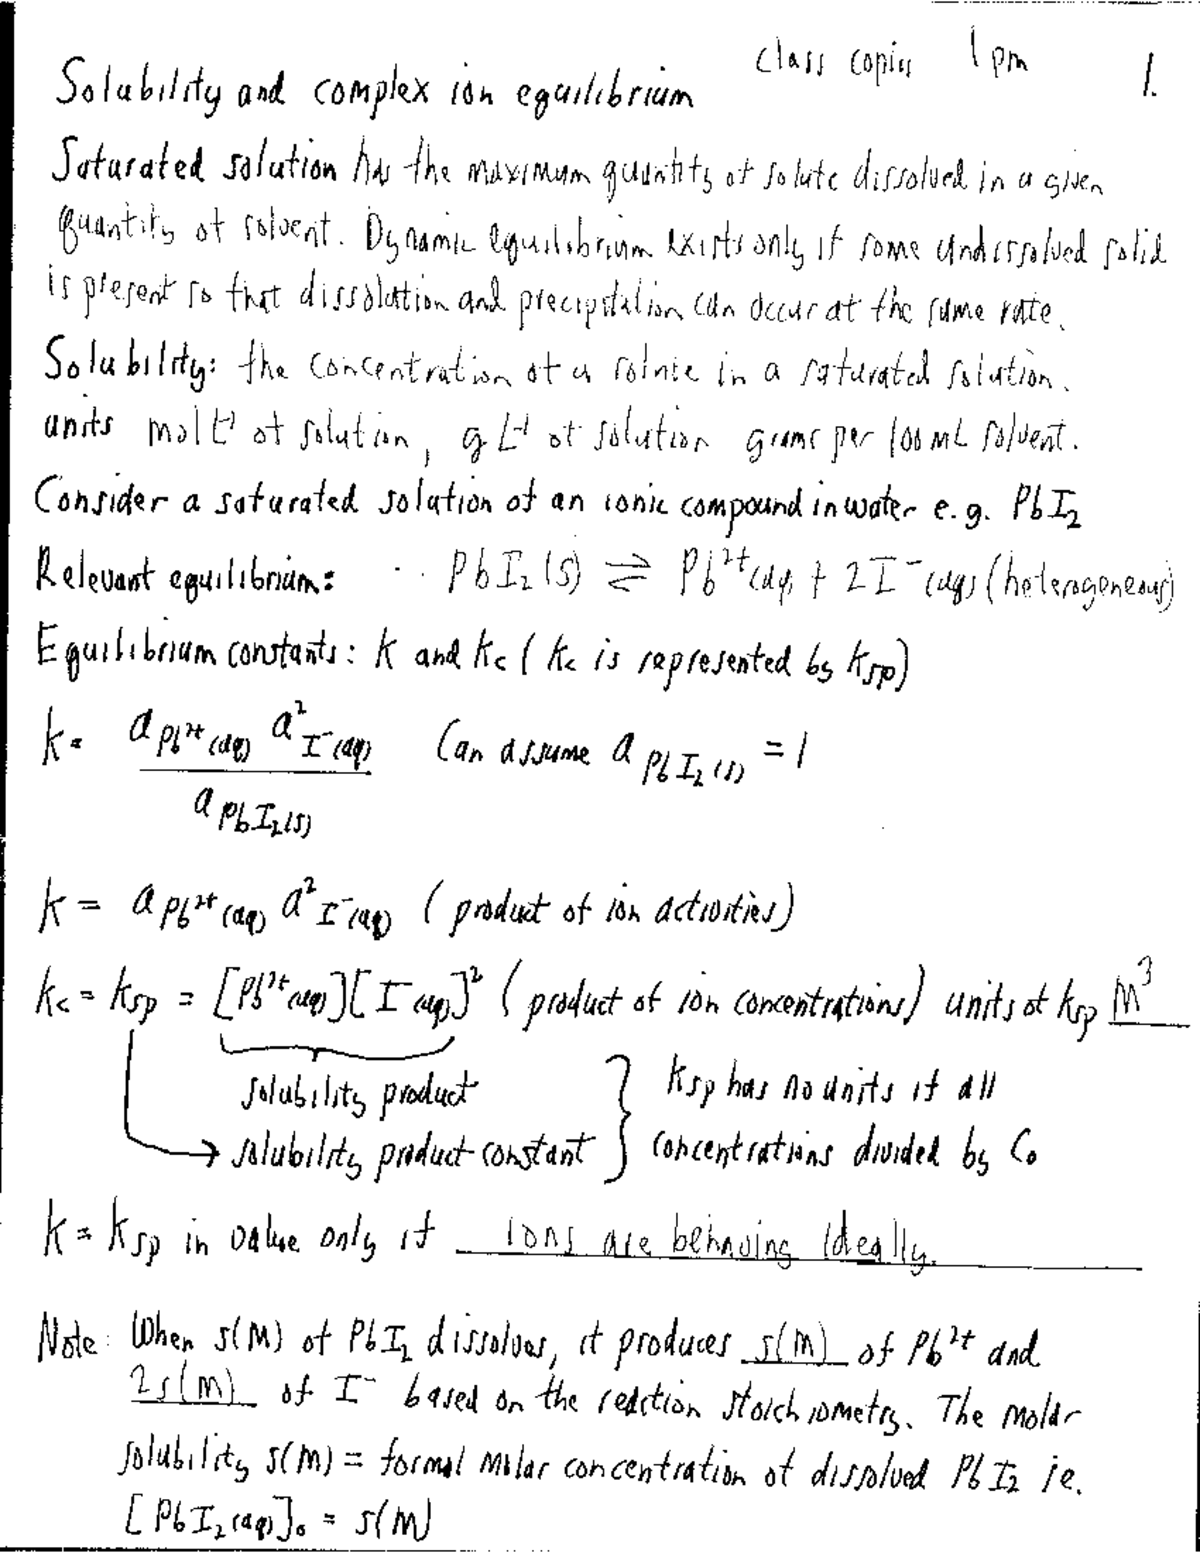 class copies 1 pm 1.
Solubility and complex ion equilibrium
Saturated solution has the maximum quantity of solute dissolved in a given
quantity of solvent. Dynamic equilibrium exists only if some undissolved solid
is present so that dissolution and precipitation can occur at the same rate.
Solubility: the concentration of a solute in a saturated solution.
units mol L⁻¹ of solution, g L⁻¹ of solution grams per 100 mL solvent.
Consider a saturated solution of an ionic compound in water e.g. PbI₂
Relevant equilibrium: PbI₂(s) ⇌ Pb²⁺(aq) + 2I⁻(aq) (heterogeneous)
Equilibrium constants: K and Kc ( Kc is represented by Ksp)
K = a Pb²⁺(aq) a² I⁻(aq) / a PbI₂(s) Can assume a PbI₂(s) = 1
K = a Pb²⁺(aq) a² I⁻(aq) ( product of ion activities)
Kc = Ksp = [Pb²⁺(aq)][I⁻(aq)]² ( product of ion concentrations) units of Ksp M³
solubility product } Ksp has no units if all
→ solubility product constant } concentrations divided by C₀
K = Ksp in value only if ions are behaving ideally.
Note: When s(M) of PbI₂ dissolves, it produces s(M) of Pb²⁺ and
2s(M) of I⁻ based on the reaction stoichiometry. The molar
solubility s(M) = formal molar concentration of dissolved PbI₂ ie.
[PbI₂(aq)]₀ = s(M)